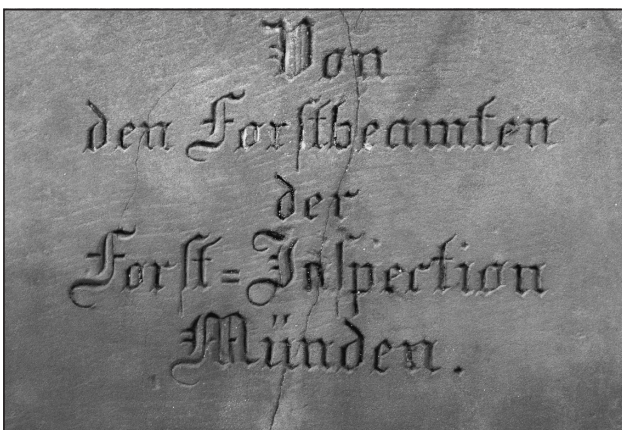 Von
den Forſtbeamten
der
Forſt=Inſpection
Münden.